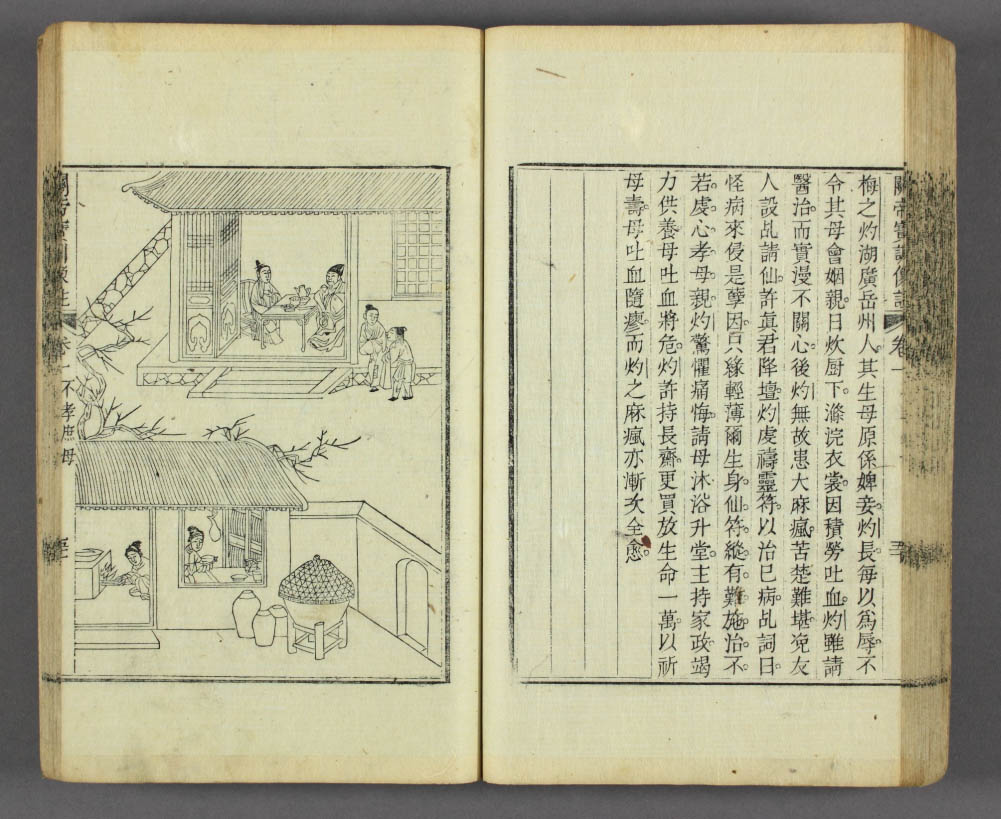 關帝寶訓像註 卷一
梅之灼湖廣岳州人其生母原係婢妾灼長每以爲辱不
令其母會姻親日炊厨下滌浣衣裳因積勞吐血灼雖請
醫治而實漫不關心後灼無故患大麻瘋苦楚難堪兔友
人設乩請仙許眞君降壇灼虔禱靈符以治已病乩詞曰
怪病來侵是孽因只緣輕薄爾生身仙符縱有難施治不
若虔心孝母親灼驚懼痛悔請母沐浴升堂主持家政竭
力供養母吐血將危灼許持長齋更買放生命一萬以祈
母壽母吐血隨瘳而灼之麻瘋亦漸次全愈
關帝寶訓像註 卷一 不孝庶母